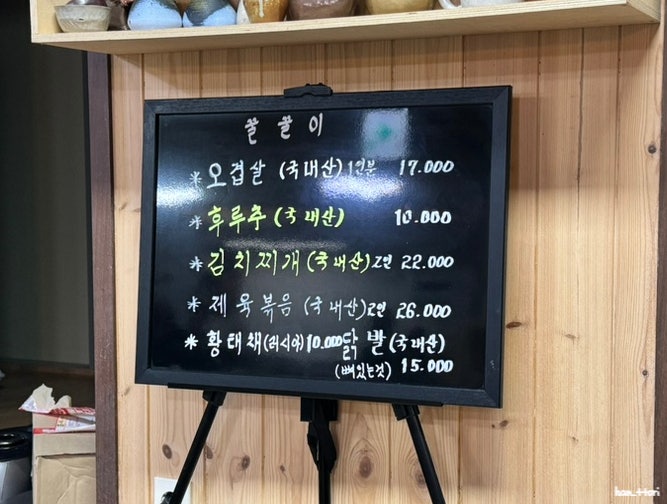 꿀꿀이
* 오겹살 (국내산) 1인분 17.000
* 후루추 (국내산) 10.000
* 김치찌개 (국내산) 2인 22.000
* 제육볶음 (국내산) 2인 26.000
* 황태채 (러시아) 10.000 닭발 (국내산)
(뼈있는것) 15.000